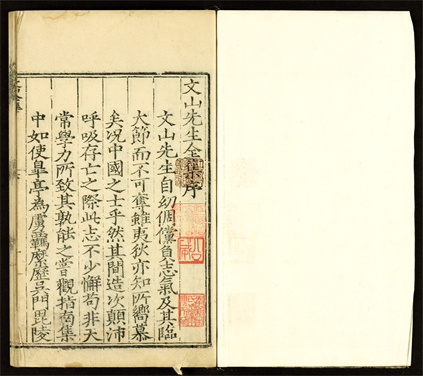 文山先生全集序
文山先生自幼倜儻負志氣及其臨
大節而不可奪雖夷狄亦知所嚮慕
矣况中國之士乎然其間造次顛沛
呼吸存亡之際此志不少懈苟非天
常學力所致其孰能之嘗觀指南集
中如使臯亭為虜羈縻歷吳門毘陵